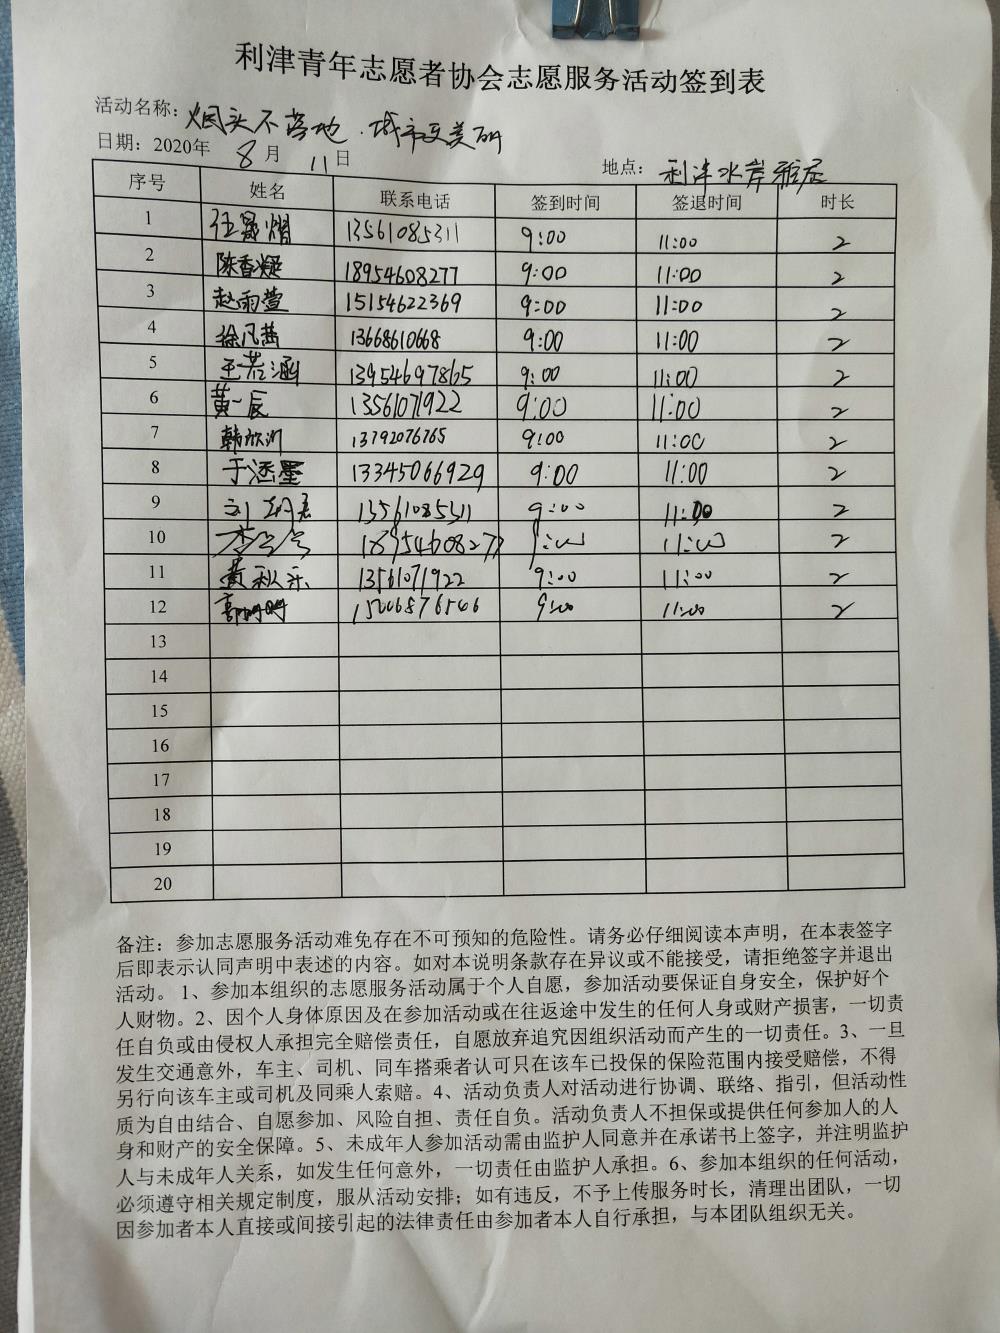 利津青年志愿者协会志愿服务活动签到表
活动名称：烟头不落地·城市更美丽
日期：2020年 8月 11日
地点：利津水岸雅居
序号 姓名 联系电话 签到时间 签退时间 时长
1 13561085311 9:00 11:00 2
2 陈香凝 18954608277 9:00 11:00 2
3 赵雨萱 15154622369 9:00 11:00 2
4 徐凡茜 13668610668 9:00 11:00 2
5 王若涵 13954697865 9:00 11:00 2
6 黄一辰 13561071922 9:00 11:00 2
7 韩欣汌 13792076765 9:00 11:00 2
8 于丞墨 13345066929 9:00 11:00 2
9 13561085311 9:00 11:00 2
10 18954608277 9:00 11:00 2
11 黄秋乐 13561071922 9:00 11:00 2
12 15046876546 9:00 11:00 2
13
14
15
16
17
18
19
20
备注：参加志愿服务活动难免存在不可预知的危险性。请务必仔细阅读本声明，在本表签字
后即表示认同声明中表述的内容。如对本说明条款存在异议或不能接受，请拒绝签字并退出
活动。1、参加本组织的志愿服务活动属于个人自愿，参加活动要保证自身安全，保护好个
人财物。2、因个人身体原因及在参加活动或在往返途中发生的任何人身或财产损害，一切责
任自负或由侵权人承担完全赔偿责任，自愿放弃追究因组织活动而产生的一切责任。3、一旦
发生交通意外，车主、司机、同车搭乘者认可只在该车已投保的保险范围内接受赔偿，不得
另行向该车主或司机及同乘人索赔。4、活动负责人对活动进行协调、联络、指引，但活动性
质为自由结合、自愿参加、风险自担、责任自负。活动负责人不担保或提供任何参加人的人
身和财产的安全保障。5、未成年人参加活动需由监护人同意并在承诺书上签字，并注明监护
人与未成年人关系，如发生任何意外，一切责任由监护人承担。6、参加本组织的任何活动，
必须遵守相关规定制度，服从活动安排；如有违反，不予上传服务时长，清理出团队，一切
因参加者本人直接或间接引起的法律责任由参加者本人自行承担，与本团队组织无关。